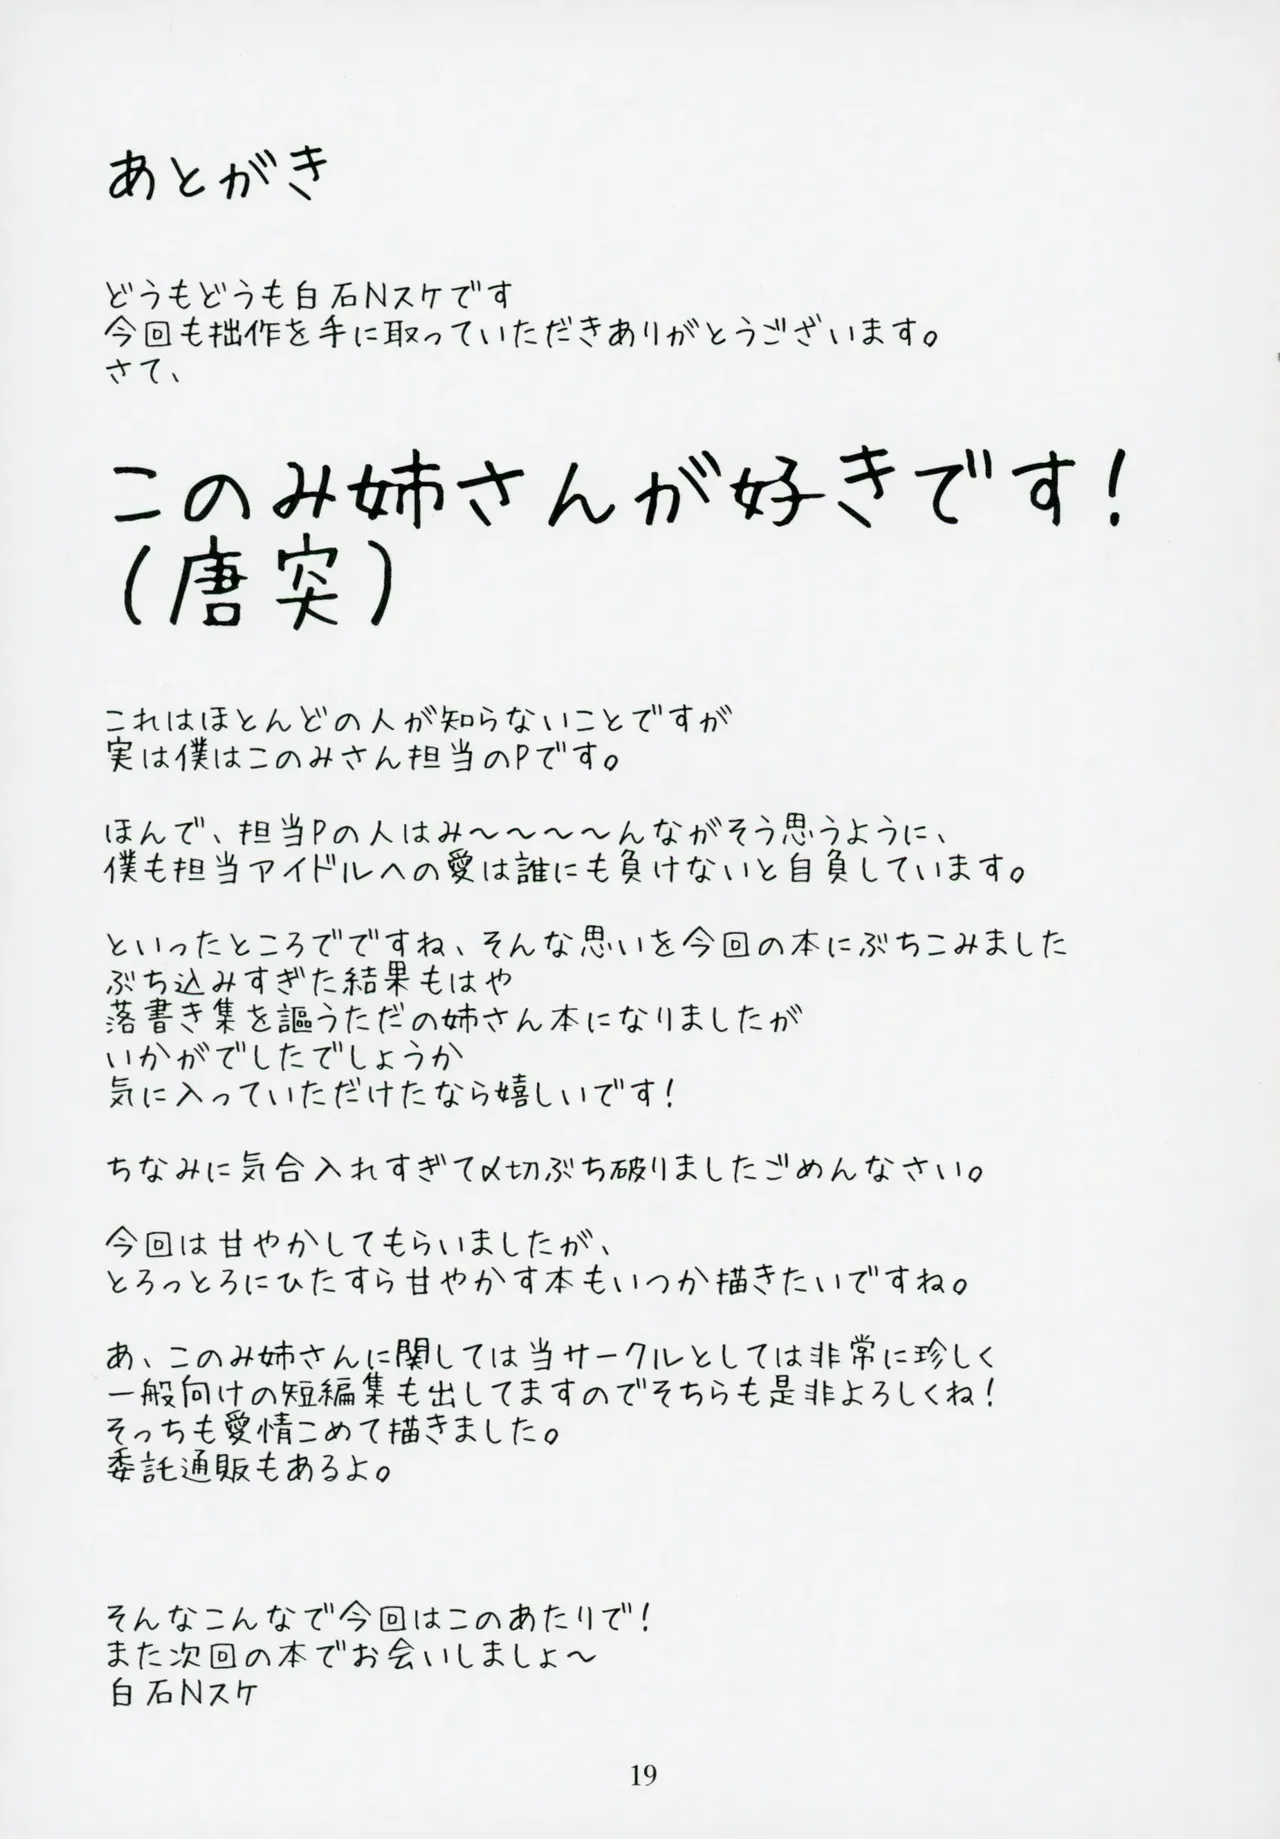 あとがき
どうもどうも白石Nスケです
今回も拙作を手に取っていただきありがとうございます。
さて、
このみ姉さんが好きです!
(唐突)
これはほとんどの人が知らないことですが
実は僕はこのみさん担当のPです。
ほんで、担当Pの人はみ～～～～んながそう思うように、
僕も担当アイドルへの愛は誰にも負けないと自負しています。
といったところでですね、そんな思いを今回の本にぶちこみました
ぶち込みすぎた結果もはや
落書き集を謳うただの姉さん本になりましたが
いかがでしたでしょうか
気に入っていただけたなら嬉しいです!
ちなみに気合入れすぎて〆切ぶち破りましたごめんなさい。
今回は甘やかしてもらいましたが、
とろっとろにひたすら甘やかす本もいつか描きたいですね。
あ、このみ姉さんに関しては当サークルとしては非常に珍しく
一般向けの短編集も出してますのでそちらも是非よろしくね!
そっちも愛情こめて描きました。
委託通販もあるよ。
そんなこんなで今回はこのあたりで!
また次回の本でお会いしましょ～
白石Nスケ
19